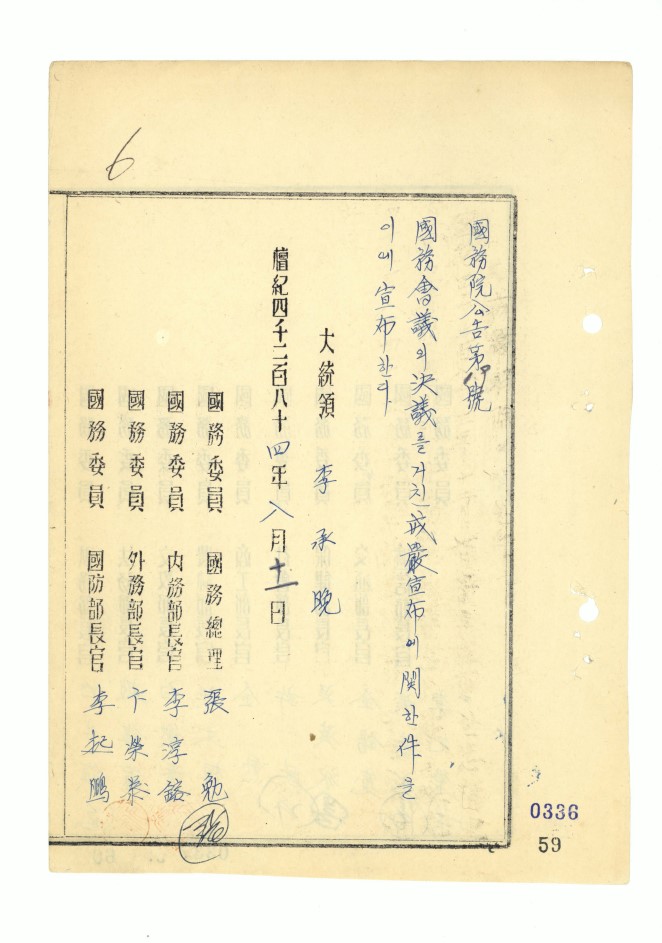 6
國務院公告第 號
國務會議의 決議를 거친 戒嚴宣布에 關한 件을
이에 宣布한다
大統領 李承晩
檀紀四千二百八十四年八月十一日
國務委員 國務總理 張勉
國務委員 內務部長官 李淳鎔
國務委員 外務部長官 卞榮泰
國務委員 國防部長官 李起鵬
0336
59